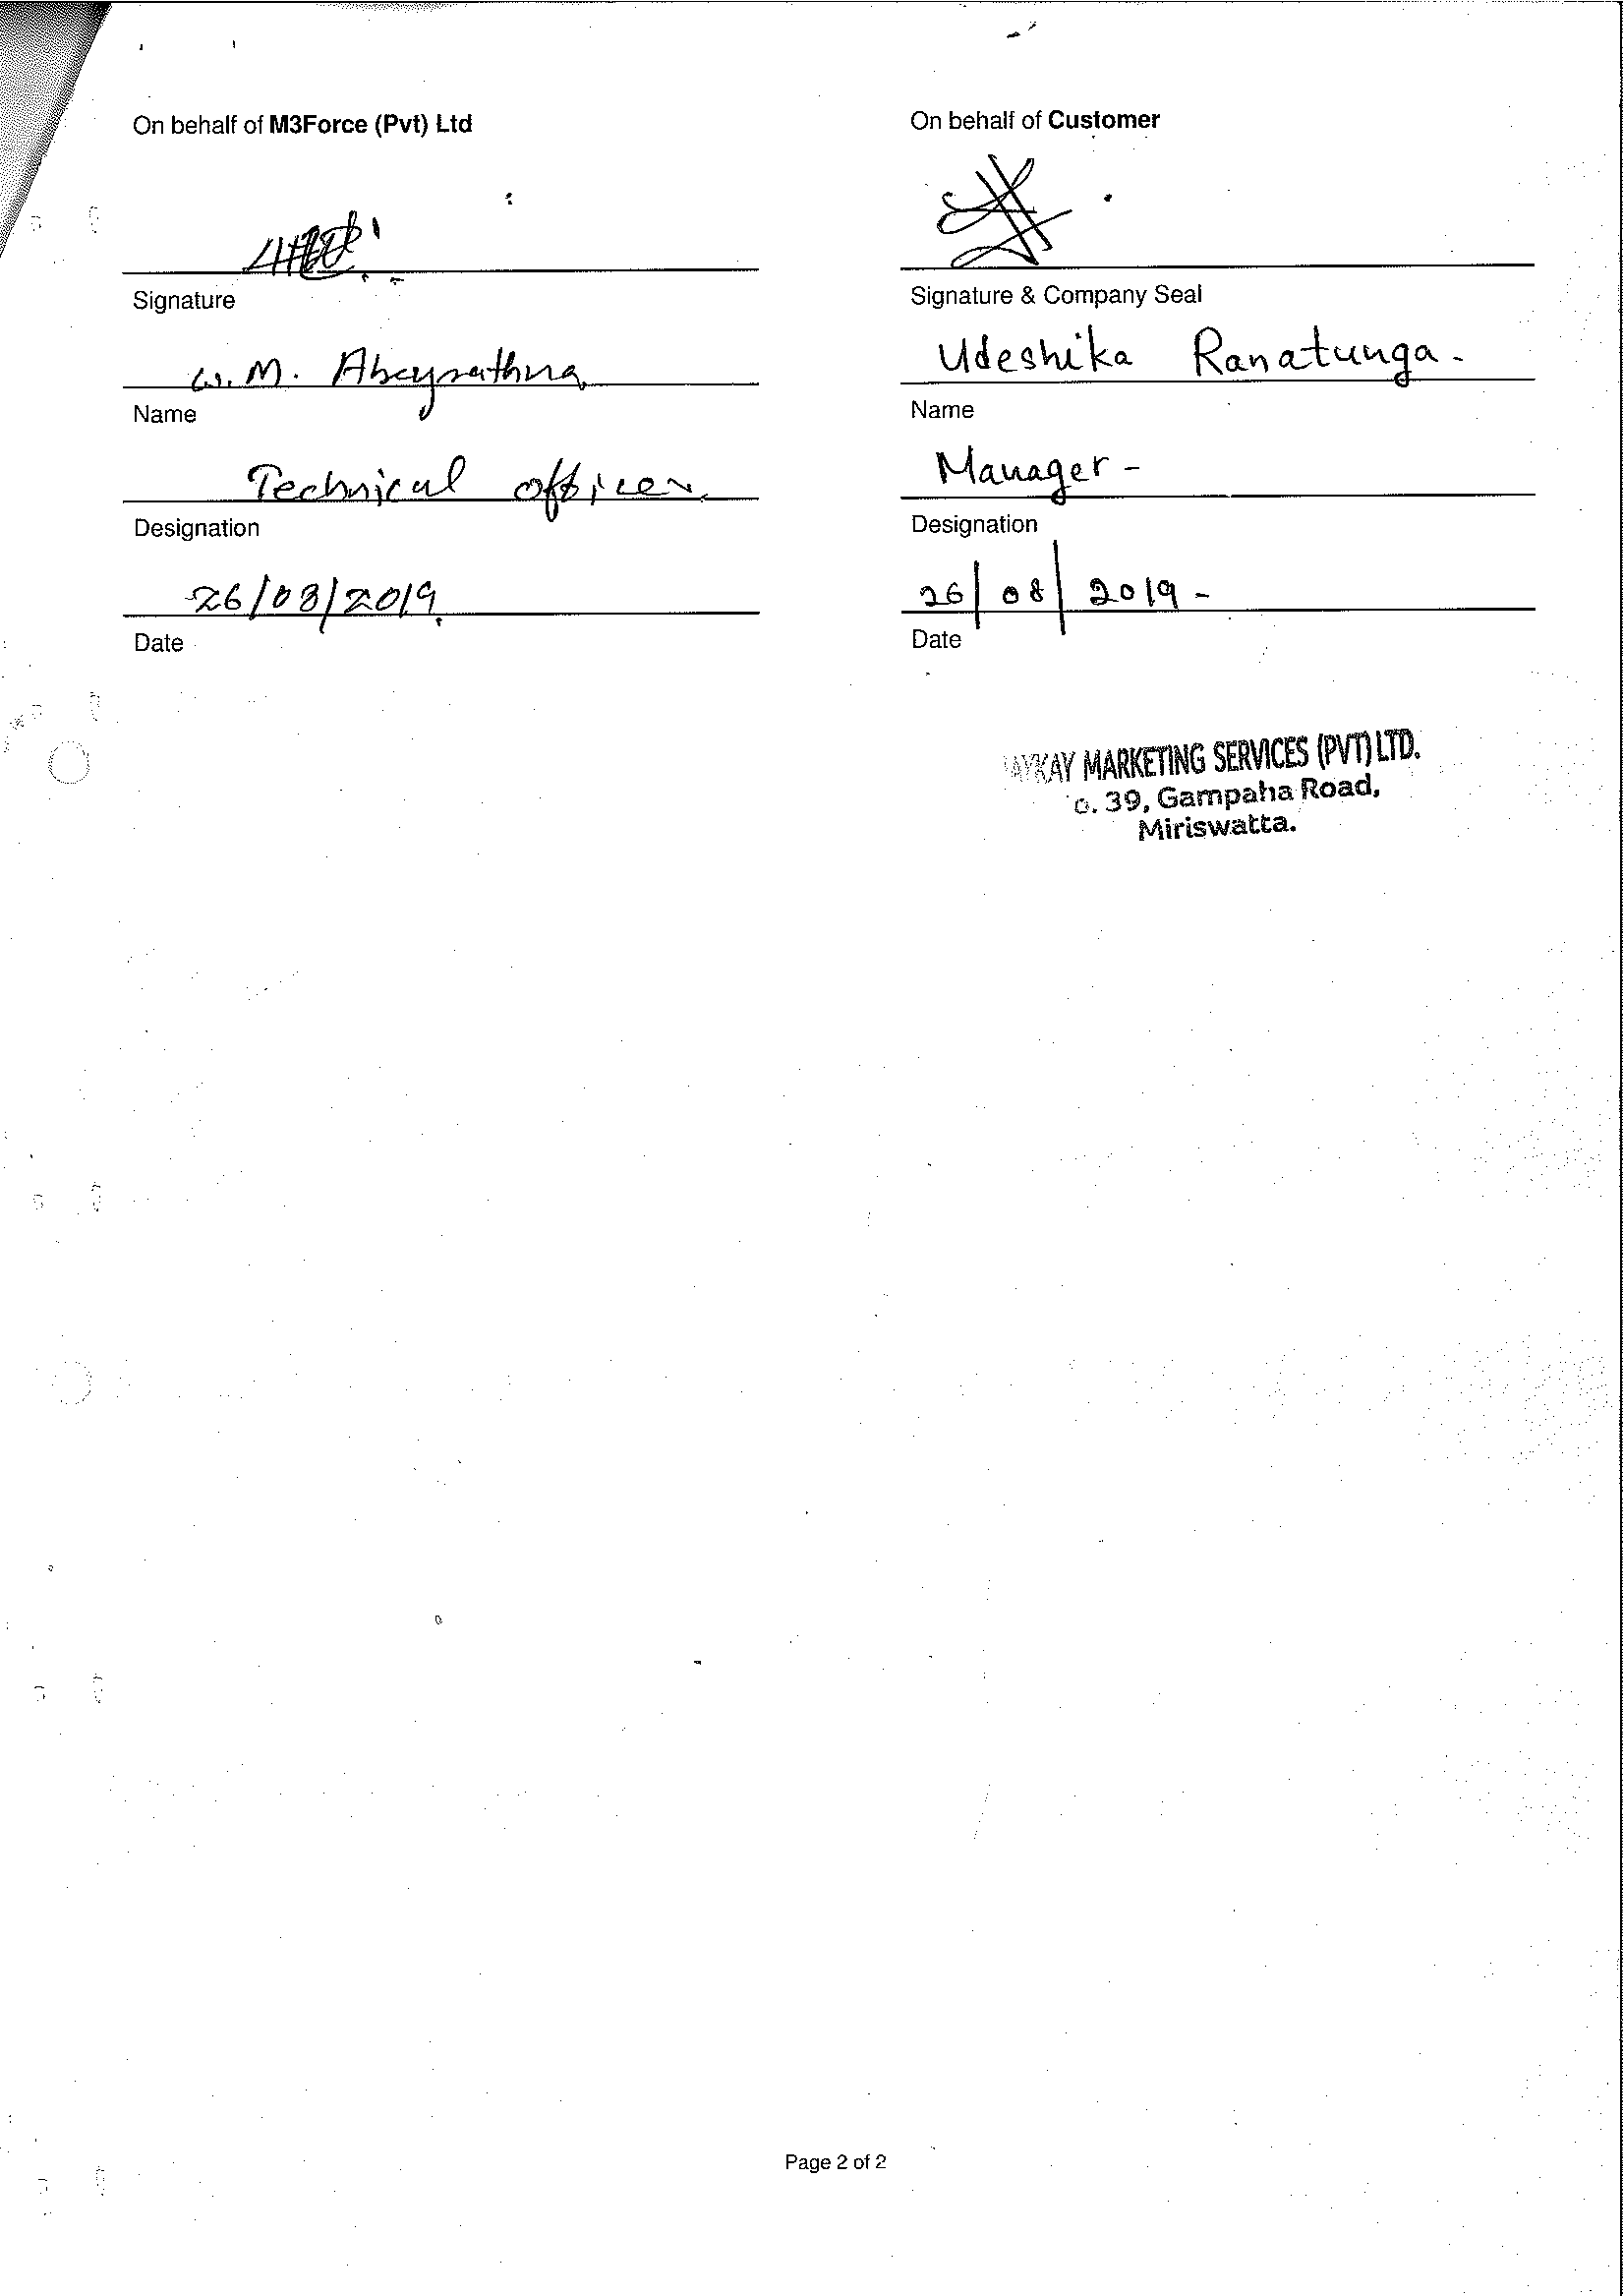 On behalf of M3Force (Pvt) Ltd
Signature
W.M. Abeyrathna
Name
Technical officer
Designation
26/08/2019
Date
On behalf of Customer
Signature & Company Seal
Udeshika Ranatunga -
Name
Manager -
Designation
26/08/2019 -
Date
MARKETING SERVICES (PVT) LTD.
39, Gampaha Road,
Miriswatta.
Page 2 of 2